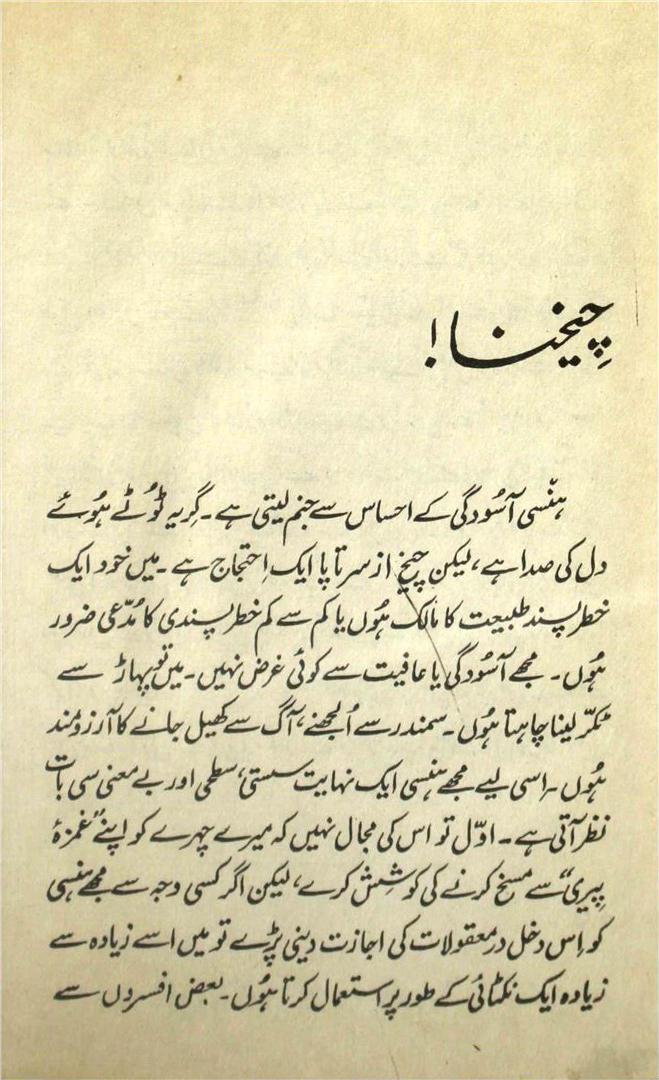 چیخنا!
ہنسی آسُودگی کے احساس سے جنم لیتی ہے۔ گِریہ ٹُوٹے ہُوئے
دل کی صدا ہے، لیکن چیخ از سرتاپا ایک اِحتجاج ہے۔ میں خود ایک
خطر پسند طبیعت کا مالک ہُوں یا کم سے کم خطر پسندی کا مُدّعی ضرور
ہُوں۔ مجھے آسُودگی یا عافیت سے کوئی غرض نہیں۔ میں تو پہاڑ سے
ٹکّر لینا چاہتا ہُوں۔ سمندر سے اُلجھنے، آگ سے کھیل جانے کا آرزومند
ہُوں۔ اسی لیے مجھے ہنسی ایک نہایت سستی، سطحی اور بے معنی سی بات
نظر آتی ہے۔ اوّل تو اس کی مجال نہیں کہ میرے چہرے کو اپنے ”غمزۂ
پیری“ سے مسخ کرنے کی کوشِش کرے، لیکن اگر کسی وجہ سے مجھے ہنسی
کو اِس دخل در معقولات کی اجازت دینی پڑے تو میں اسے زیادہ سے
زیادہ ایک نکٹائی کے طور پر استعمال کرتا ہُوں۔ بعض افسروں سے